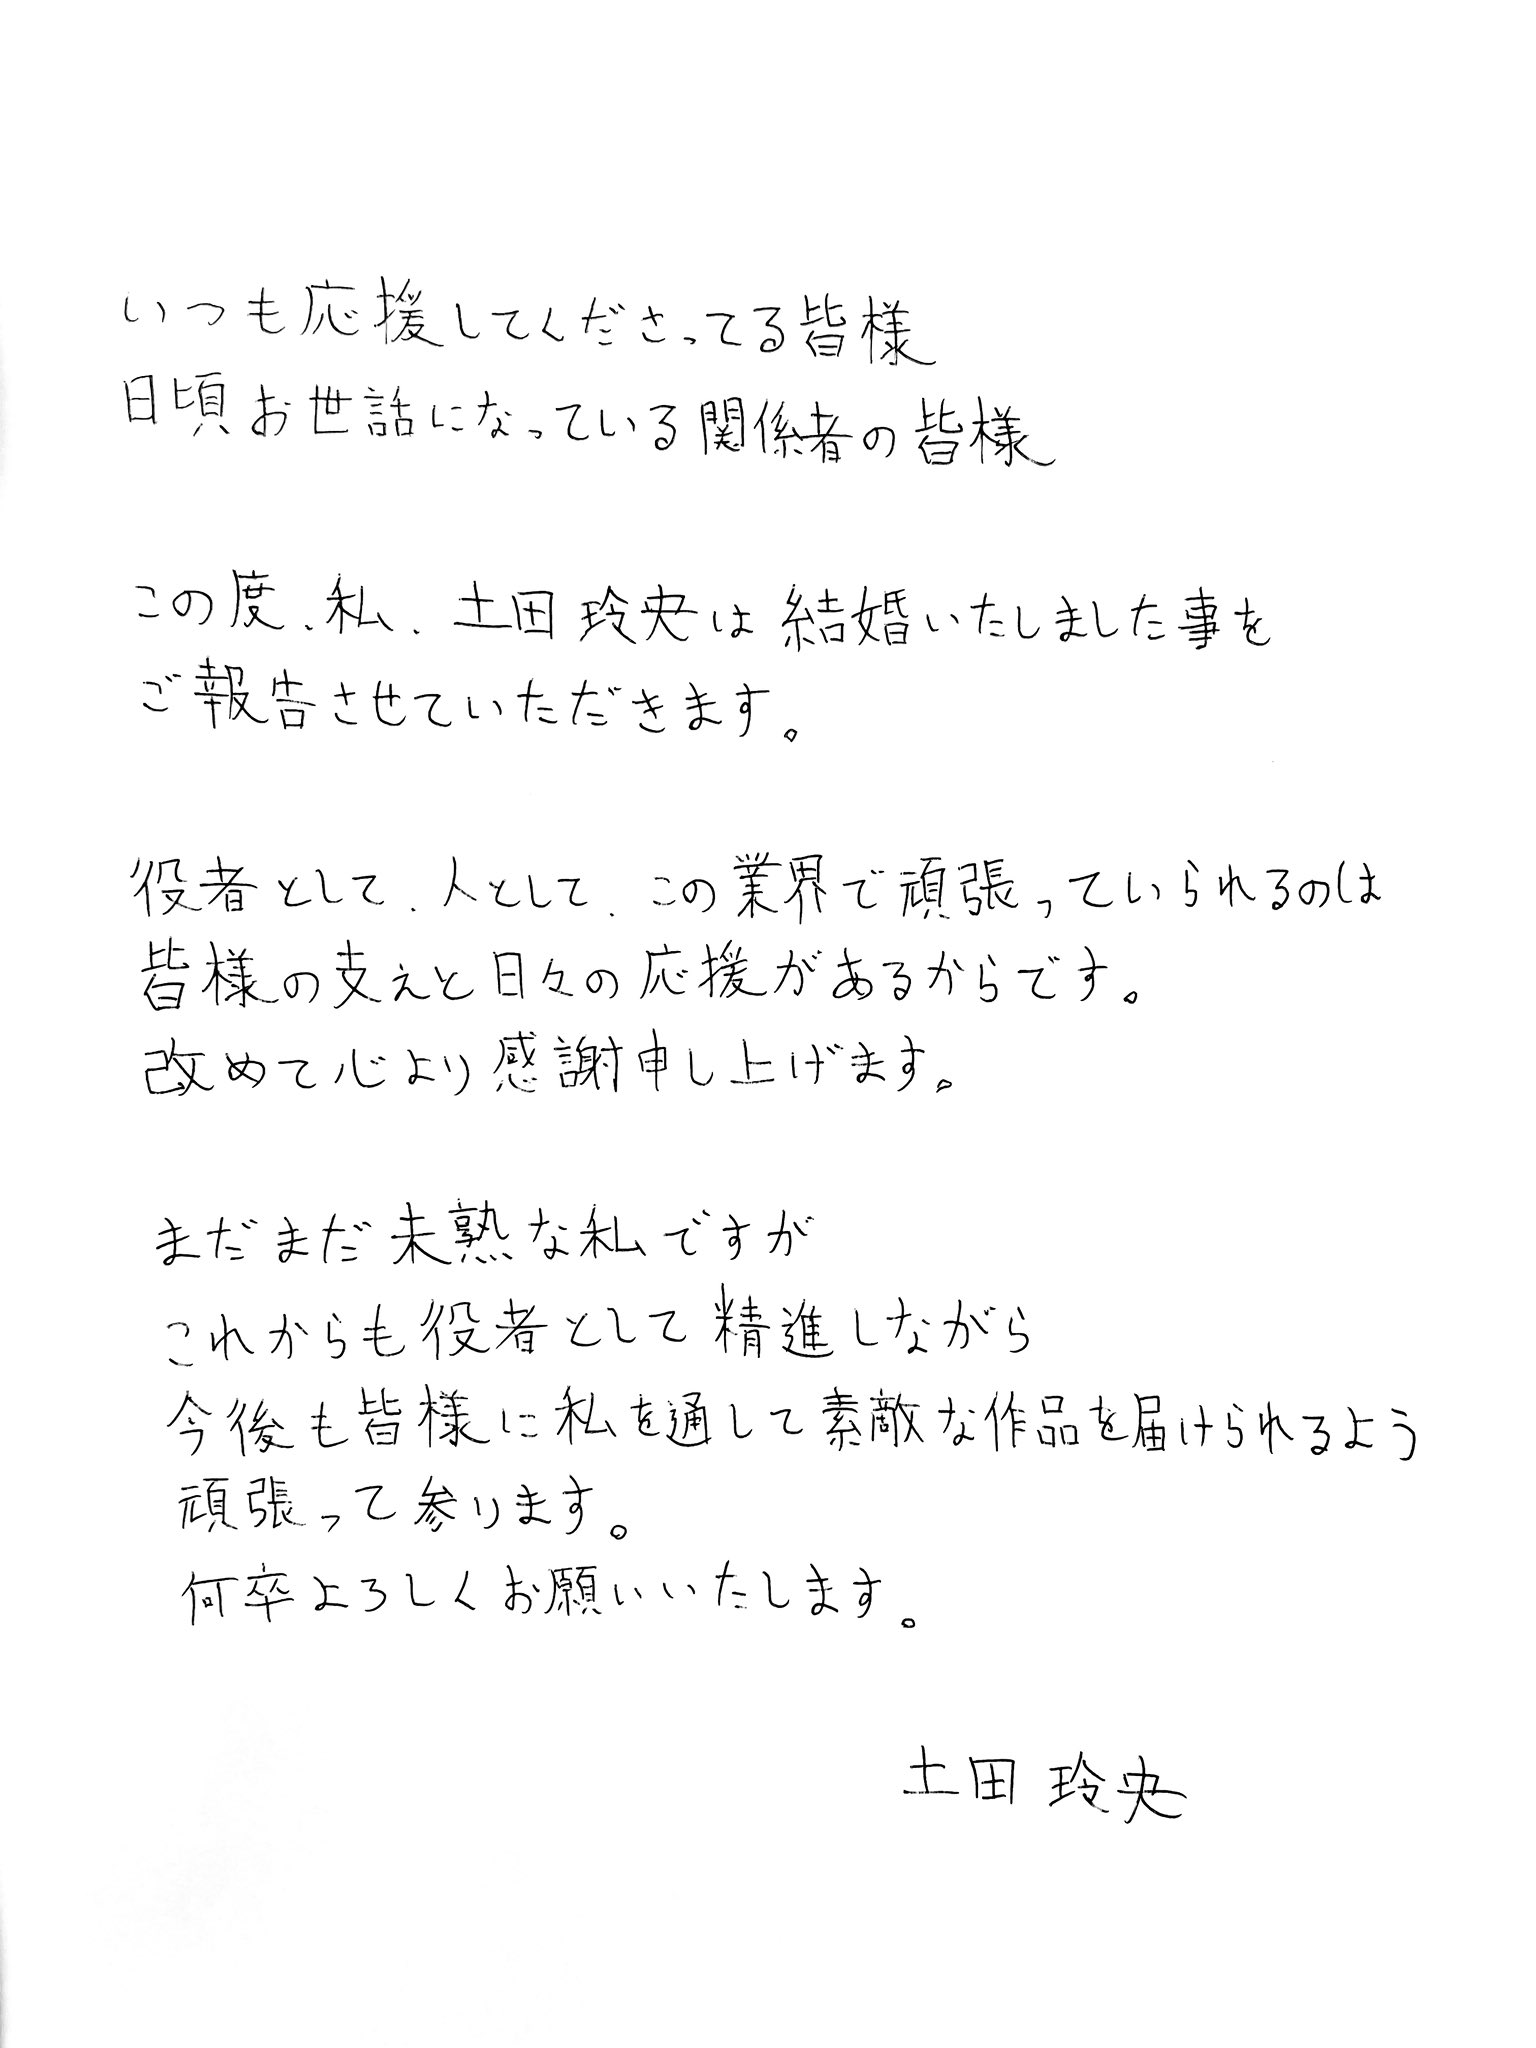 いつも応援してくださってる皆様
日頃お世話になっている関係者の皆様
この度、私、土田玲央は結婚いたしました事を
ご報告させていただきます。
役者として、人として、この業界で頑張っていられるのは
皆様の支えと日々の応援があるからです。
改めて心より感謝申し上げます。
まだまだ未熟な私ですが
これからも役者として精進しながら
今後も皆様に私を通して素敵な作品を届けられるよう
頑張って参ります。
何卒よろしくお願いいたします。
土田玲央